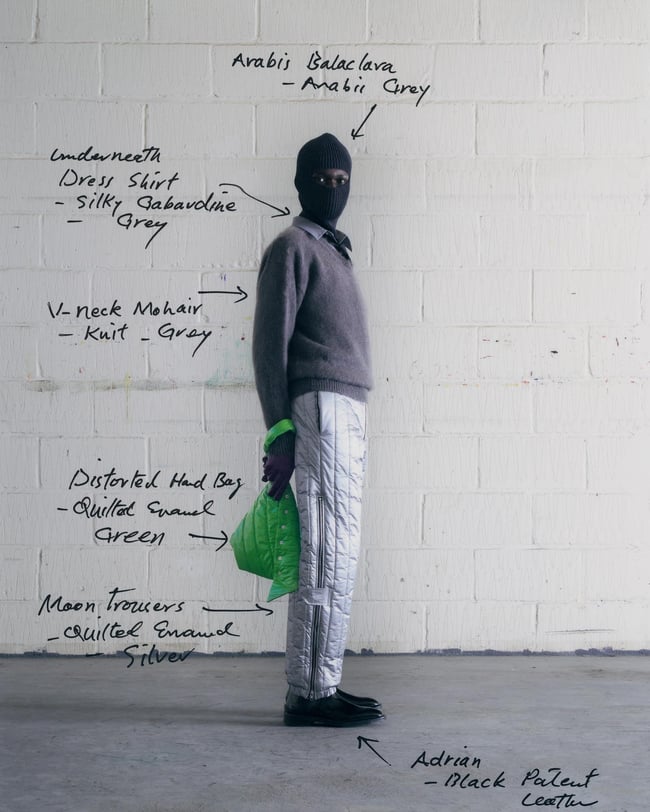 Arabis Balaclava
- Arabis Grey
underneath
Dress Shirt
- Silky Gabardine
- Grey
V-neck Mohair
- Knit - Grey
Distorted Hand Bag
- Quilted Enamel
Green
Moon Trousers
- Quilted Enamel
- Silver
Adrian
- Black Patent
Leather